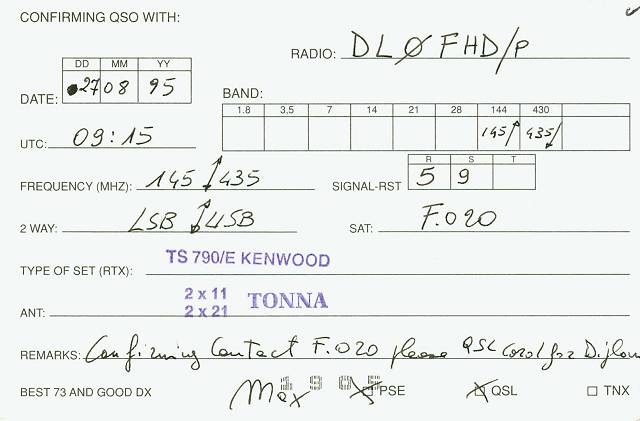 CONFIRMING QSO WITH:
RADIO: DLØFHD/p
DD MM YY
DATE: 27 08 95
BAND:
1.8 3,5 7 14 21 28 144 430
145 435
UTC: 09:15
R S T
FREQUENCY (MHZ): 145 435 SIGNAL-RST 5 9
2 WAY: LSB USB SAT: F.020
TYPE OF SET (RTX): TS 790/E KENWOOD
2 x 11
ANT: 2 x 21 TONNA
REMARKS: Confirming Contact F.020 please QSL card for Diplom
BEST 73 AND GOOD DX Max PSE QSL TNX